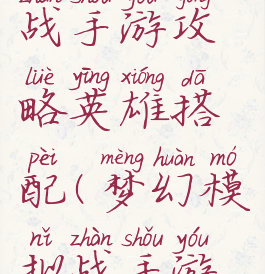 zhàn shǒu yóu gōng
战手游攻
lüè yīng xióng dā
略英雄搭
pèi mèng huàn mó
配(梦幻模
nǐ zhàn shǒu yóu
拟战手游